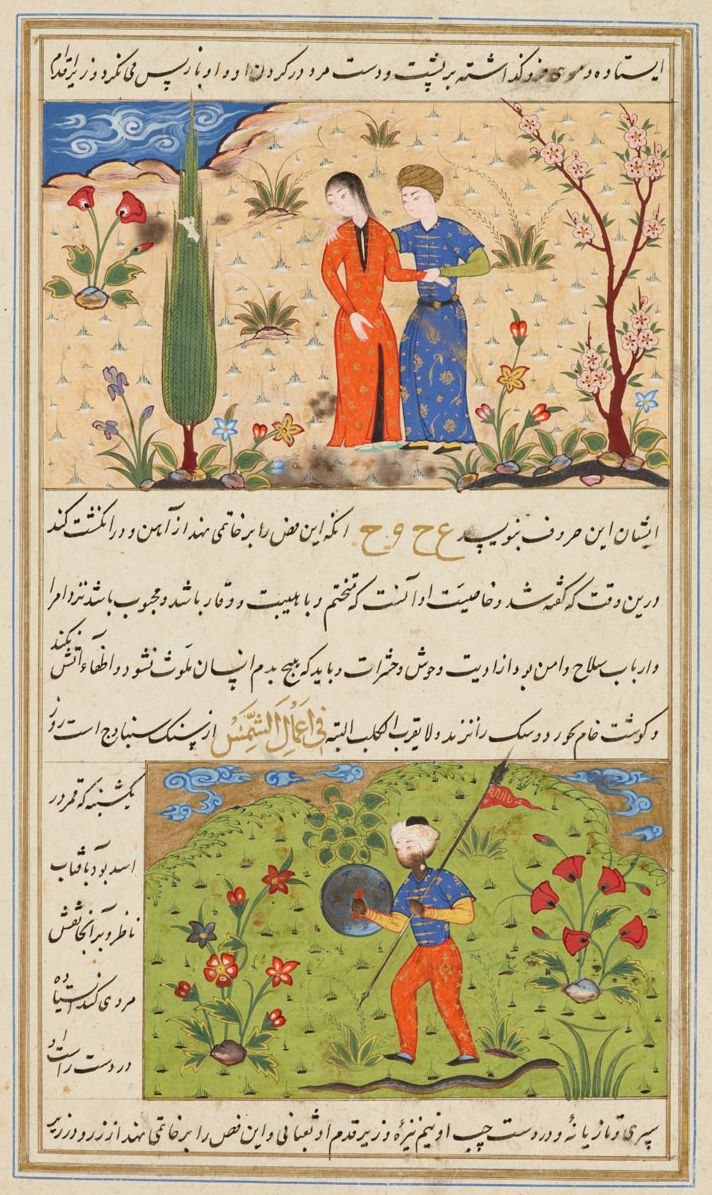 ایستاده و موی فرو گذاشته بر پشت و دست مرد در گردن او و او باز پس می نگرد و زیر قدم
ایشان این حروف بنویسد ع ح و ح انکه این فص را بر خاتمی نهد از آهن و در انگشت کند
درین وقت که گفته شد و خاصیت او آنست که متختم و با هیبت و وقار باشد و محبوب باشد نزد امرا
وارباب سلاح وامن بود از اذیت وحوش وحشرات و باید که هیچ بدم انسان ملوث نشود و اطفاء آتش نکند
و گوشت خام نخورد و سگ را نزند ولا یقرب الکلب البته فی اعمال الشمس از سنگ سنبادج است روز
یکشنبه که قمر در
اسد بود با فتاب
ناظر و بر آنجا نقش
مردی کند ایستاده
در دست راست او
سپری و تازیانهٔ و در دست چپ او نیم نیزهٔ و زیر قدم او ثعبانی و این فص را بر خاتمی نهد از زر و در زیر